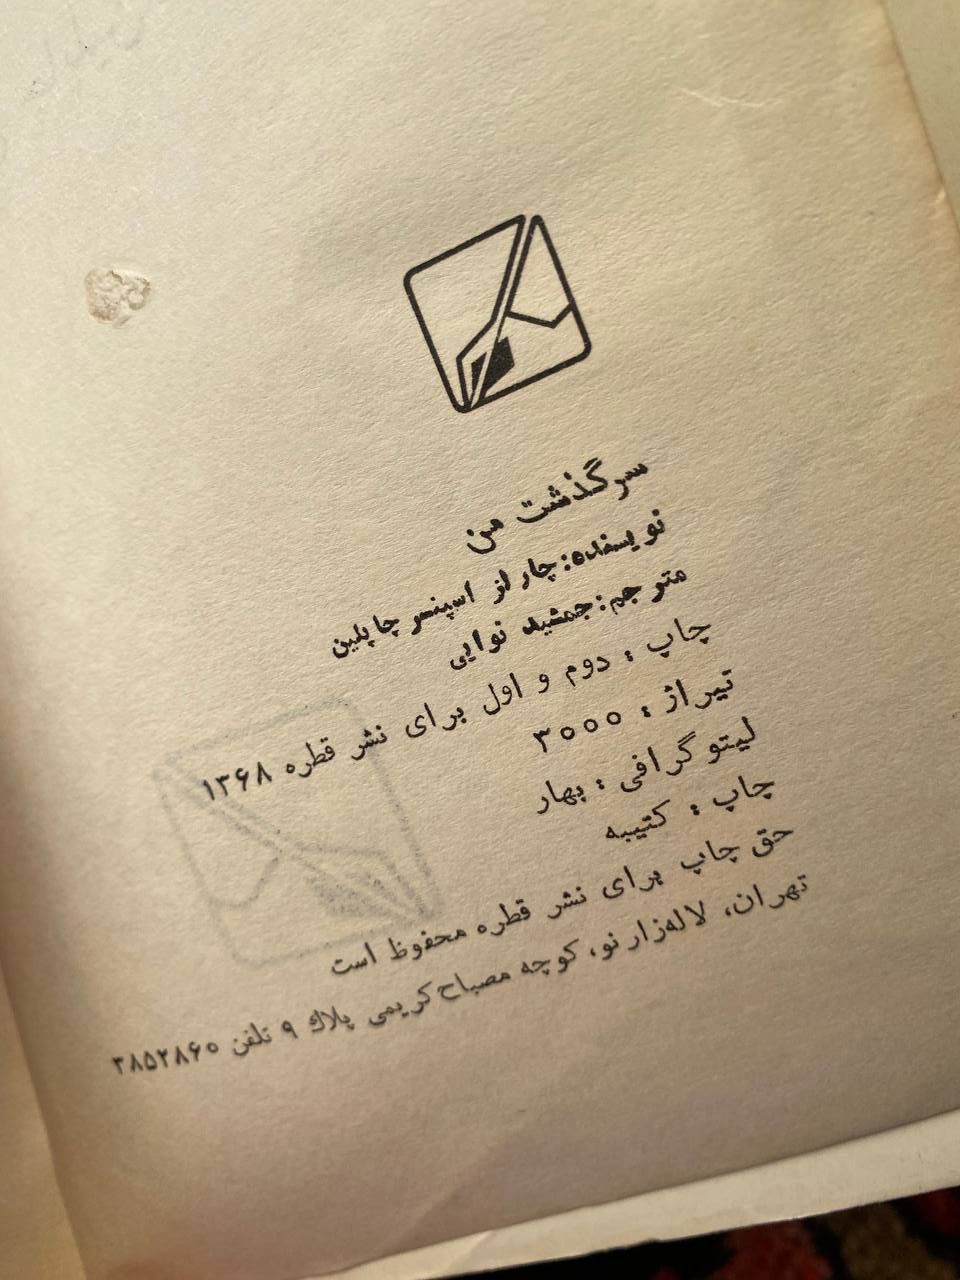 سرگذشت من
نویسنده: چارلز اسپنسر چاپلین
مترجم: جمشید نوایی
چاپ: دوم و اول برای نشر قطره ۱۳۶۸
تیراژ: ۳۰۰۰
لیتوگرافی: بهار
چاپ: کتیبه
حق چاپ برای نشر قطره محفوظ است
تهران، لاله‌زار نو، کوچه مصباح‌کریمی پلاك ۹ تلفن ۳۸۵۲۸۶۰